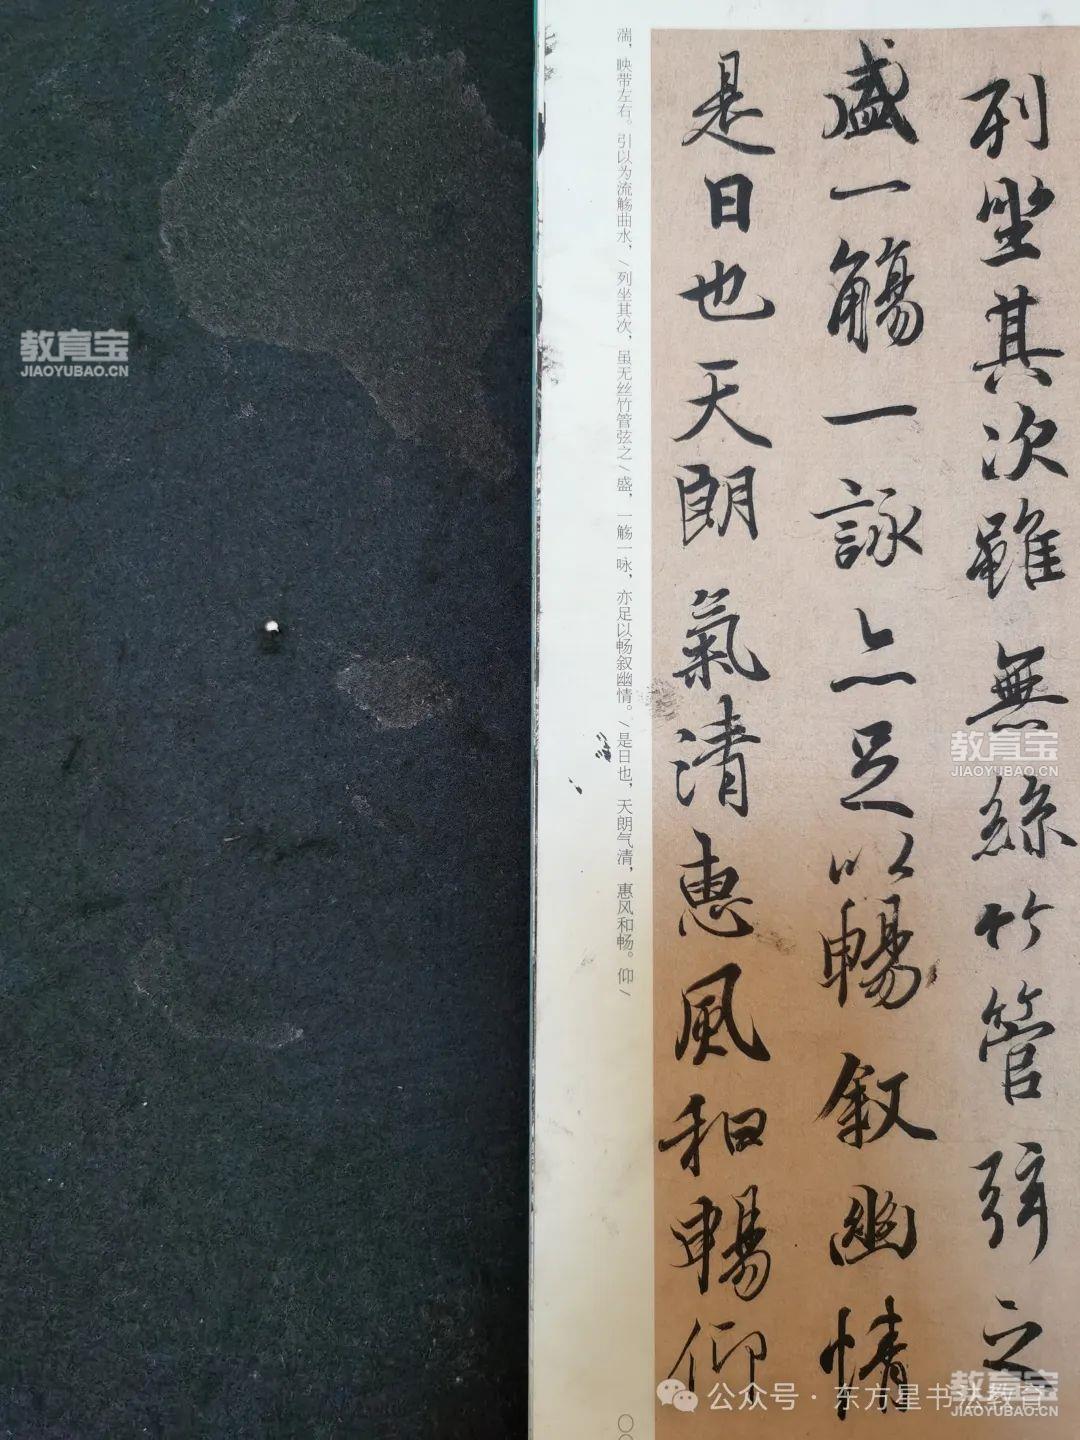 列坐其次雖無絲竹管弦之
盛一觴一詠亦足以暢敘幽情
是日也天朗氣清惠風和暢仰
湍，映带左右。引以为流觞曲水，/列坐其次，虽无丝竹管弦之/盛，一觞一咏，亦足以畅叙幽情。/是日也，天朗气清，惠风和畅。仰/
教育宝
JIAOYUBAO.CN
教育宝
JIAOYUBAO.CN
教育宝
JIAOYUBAO.CN
公众号·东方星书法教育